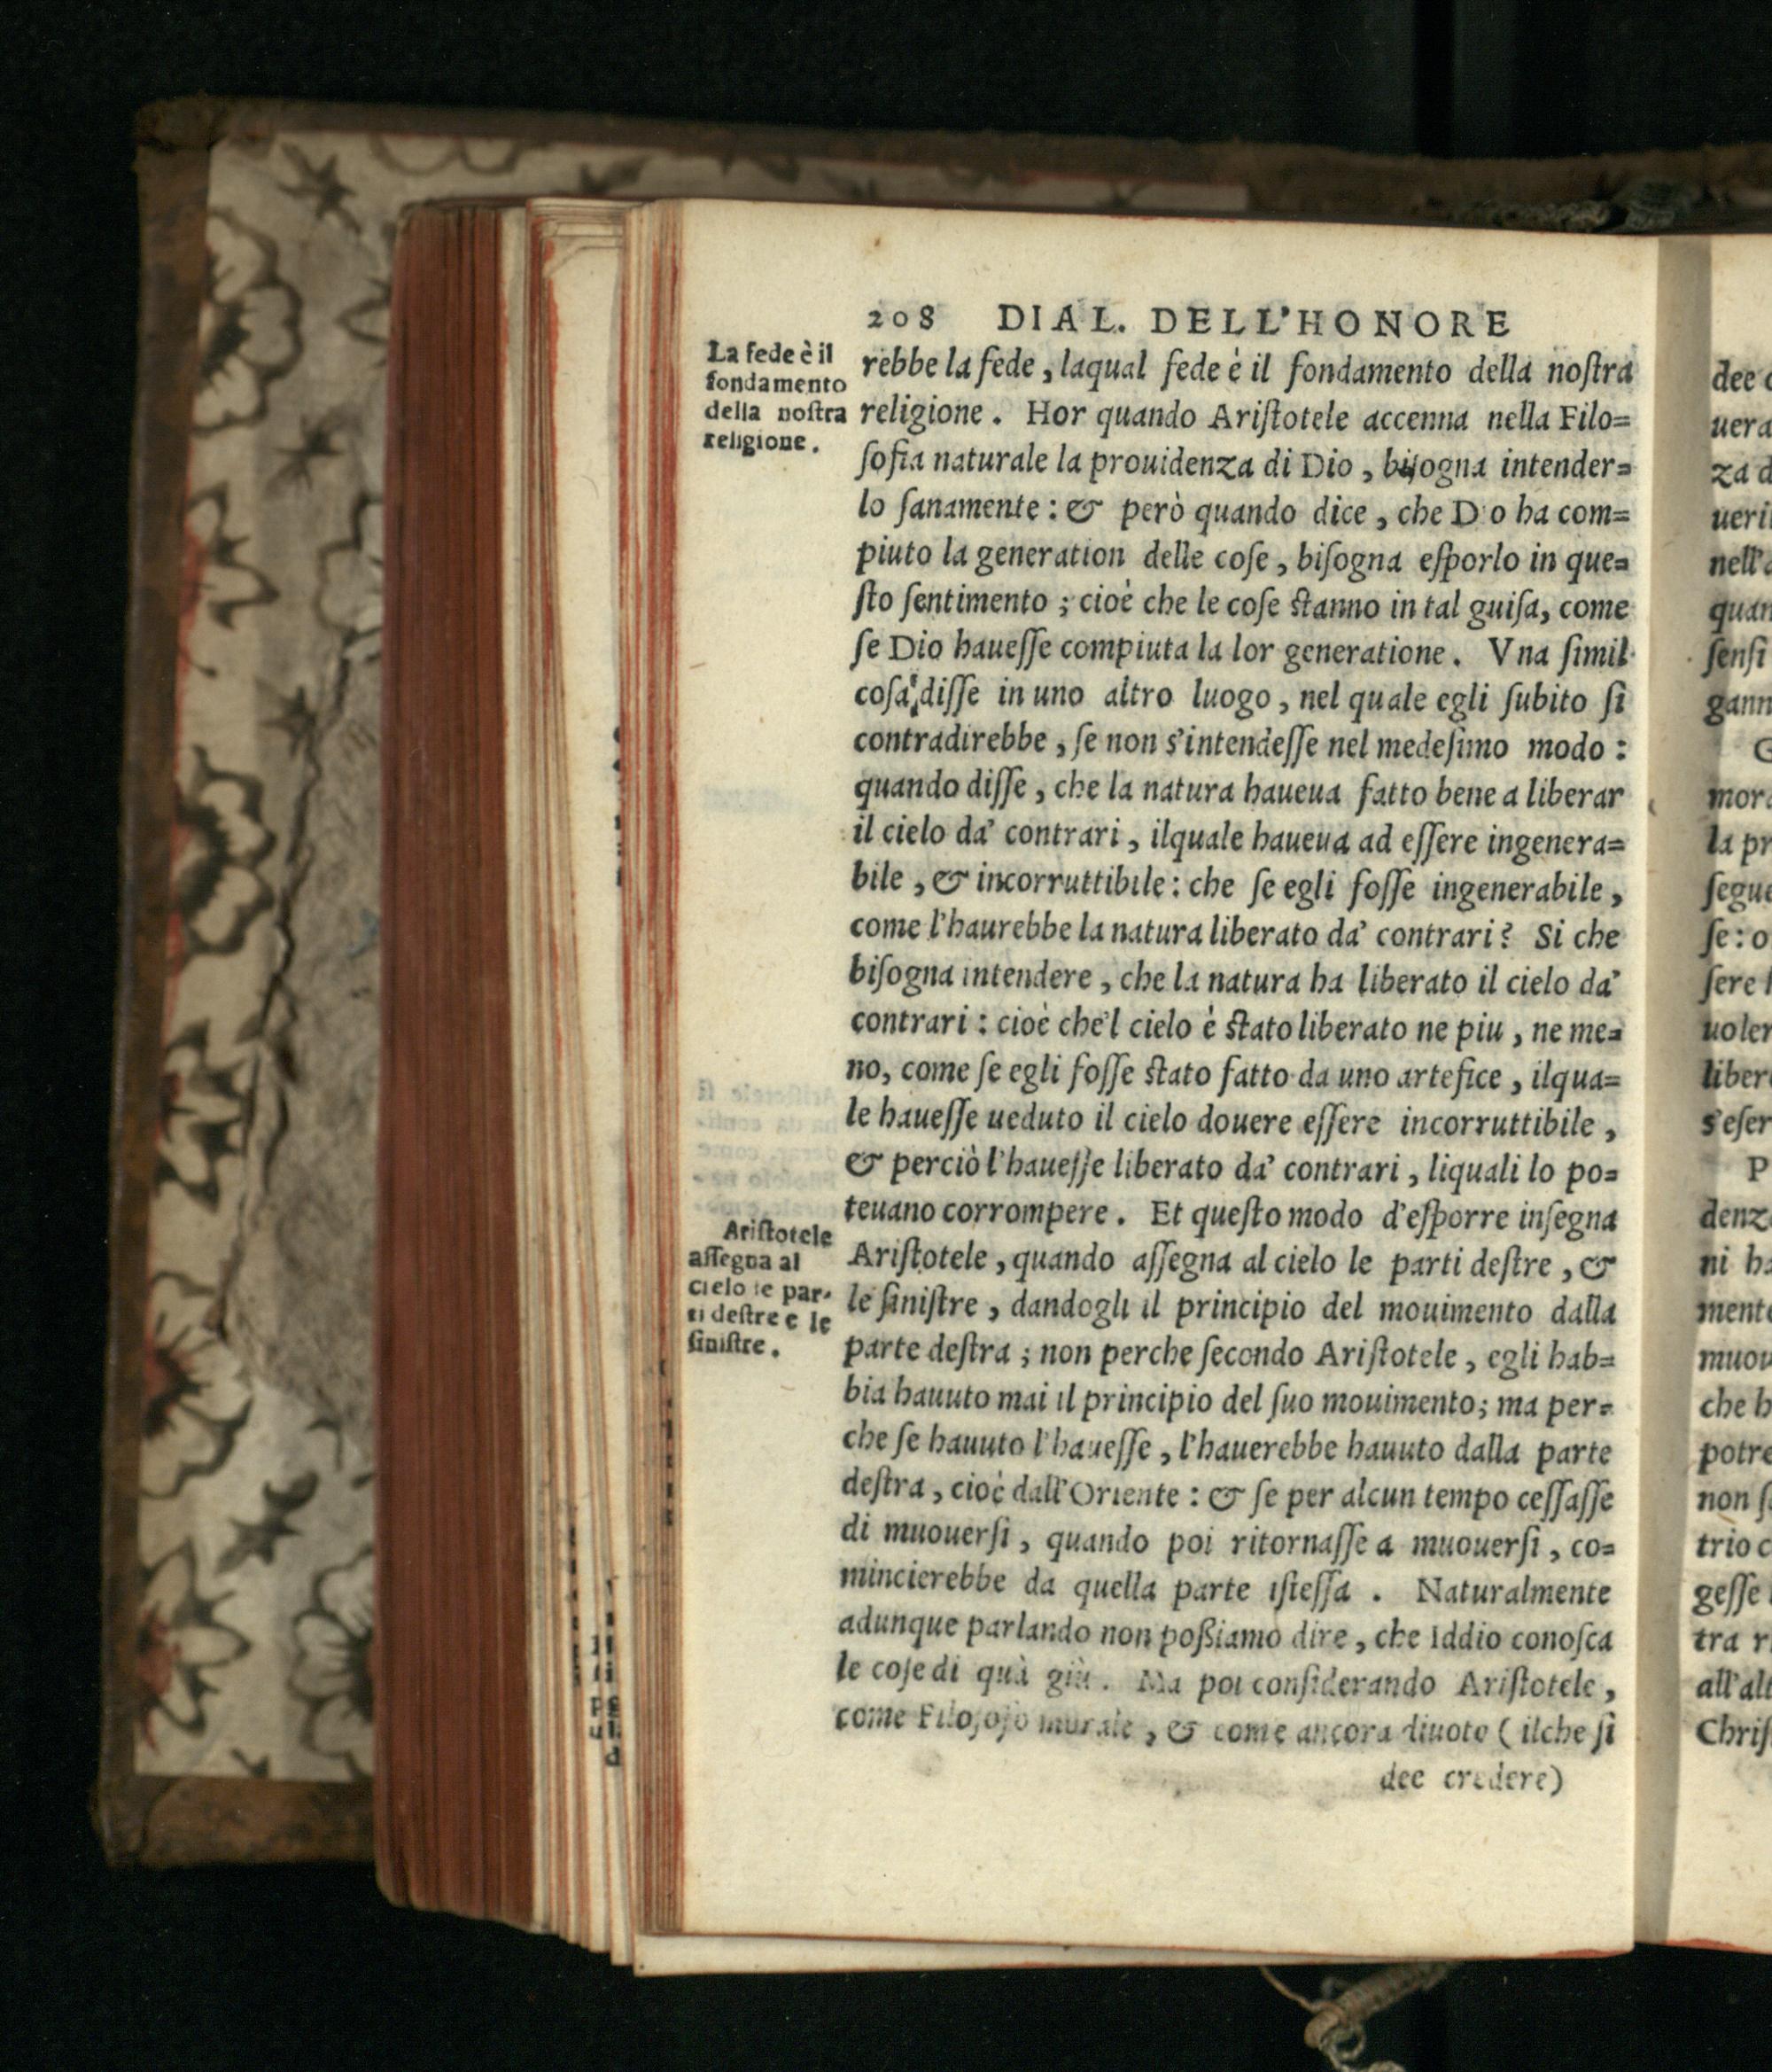 208 DIAL. DELL'HONORE
La fede è il
fondamento
della noſtra
religione.
rebbe la fede, laqual fede è il fondamento della noſtra
religione. Hor quando Ariſtotele accenna nella Filo=
ſofia naturale la prouidenza di Dio, biſogna intender=
lo ſanamente: & però quando dice, che D o ha com=
piuto la generation delle coſe, biſogna eſporlo in que=
ſto ſentimento; cioè che le coſe ſtanno in tal guiſa, come
ſe Dio haueſſe compiuta la lor generatione. Vna ſimil
coſa diſſe in uno altro luogo, nel quale egli ſubito ſi
contradirebbe, ſe non s'intendeſſe nel medeſimo modo:
quando diſſe, che la natura haueua fatto bene a liberar
il cielo da' contrari, ilquale haueua ad eſſere ingenera=
bile, & incorruttibile: che ſe egli foſſe ingenerabile,
come l'haurebbe la natura liberato da' contrari? Si che
biſogna intendere, che la natura ha liberato il cielo da'
contrari: cioè che'l cielo è ſtato liberato ne piu, ne me=
no, come ſe egli foſſe ſtato fatto da uno artefice, ilqua=
le haueſſe ueduto il cielo douere eſſere incorruttibile,
& perciò l'haueſſe liberato da' contrari, liquali lo po=
teuano corrompere. Et queſto modo d'eſporre inſegna
Ariſtotele, quando aſſegna al cielo le parti deſtre, &
le ſiniſtre, dandogli il principio del mouimento dalla
parte deſtra; non perche ſecondo Ariſtotele, egli hab=
bia hauuto mai il principio del ſuo mouimento; ma per=
che ſe hauuto l'haueſſe, l'hauerebbe hauuto dalla parte
deſtra, cioè dall'Oriente: & ſe per alcun tempo ceſſaſſe
di muouerſi, quando poi ritornaſſe a muouerſi, co=
mincierebbe da quella parte iſteſſa. Naturalmente
adunque parlando non poßiamo dire, che Iddio conoſca
le coſe di quà giù. Ma poi conſiderando Ariſtotele,
come Filoſofo morale, & come ancora diuoto (ilche ſi
dee credere)
Ariſtotele
aſſegna al
cielo le par-
ti deſtre e le
ſiniſtre.
uera
za d
nell'a
ſenſi
mor
la pr
ſe: o
uoler
P
ni ha
che h
potre
non ſ
trio c
geſſe
tra r
all'al
Chriſ